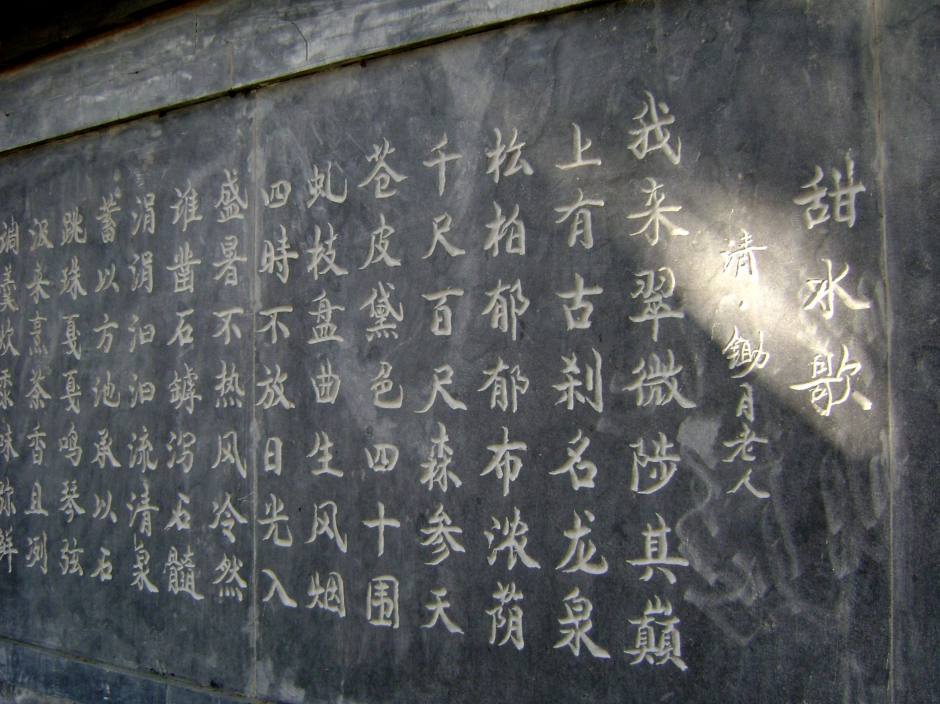 甜水歌
清·锄月老人
我来翠微陟其巅
上有古刹名龙泉
松柏郁郁布浓荫
千尺百尺森参天
苍皮黛色四十围
虬枝盘曲生风烟
四時不放日光入
盛暑不热风冷然
谁凿石罅泻石髓
涓涓汩汩流清泉
蓄以方池承以石
跳珠戛戛鸣琴弦
汲来烹茶香且冽
调羹炊黍味弥鲜